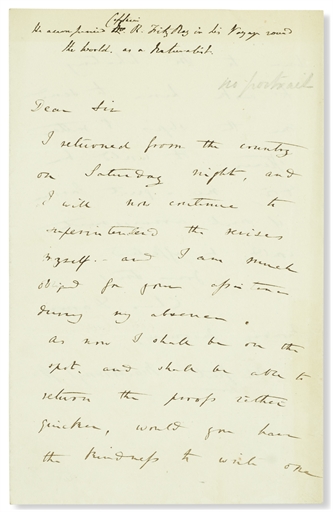 He accompanied Captain R. FitzRoy in his Voyage round
the World. as a Naturalist.
no portrait
Dear Sir
I returned from the country
on Saturday night, and
I will now continue to
superintendend the revises
myself.— and I am much
obliged for your assistance
during my absence.
as now I shall be on the
spot. and shall be able to
return the proofs rather
quicker, would you have
the kindness to write one